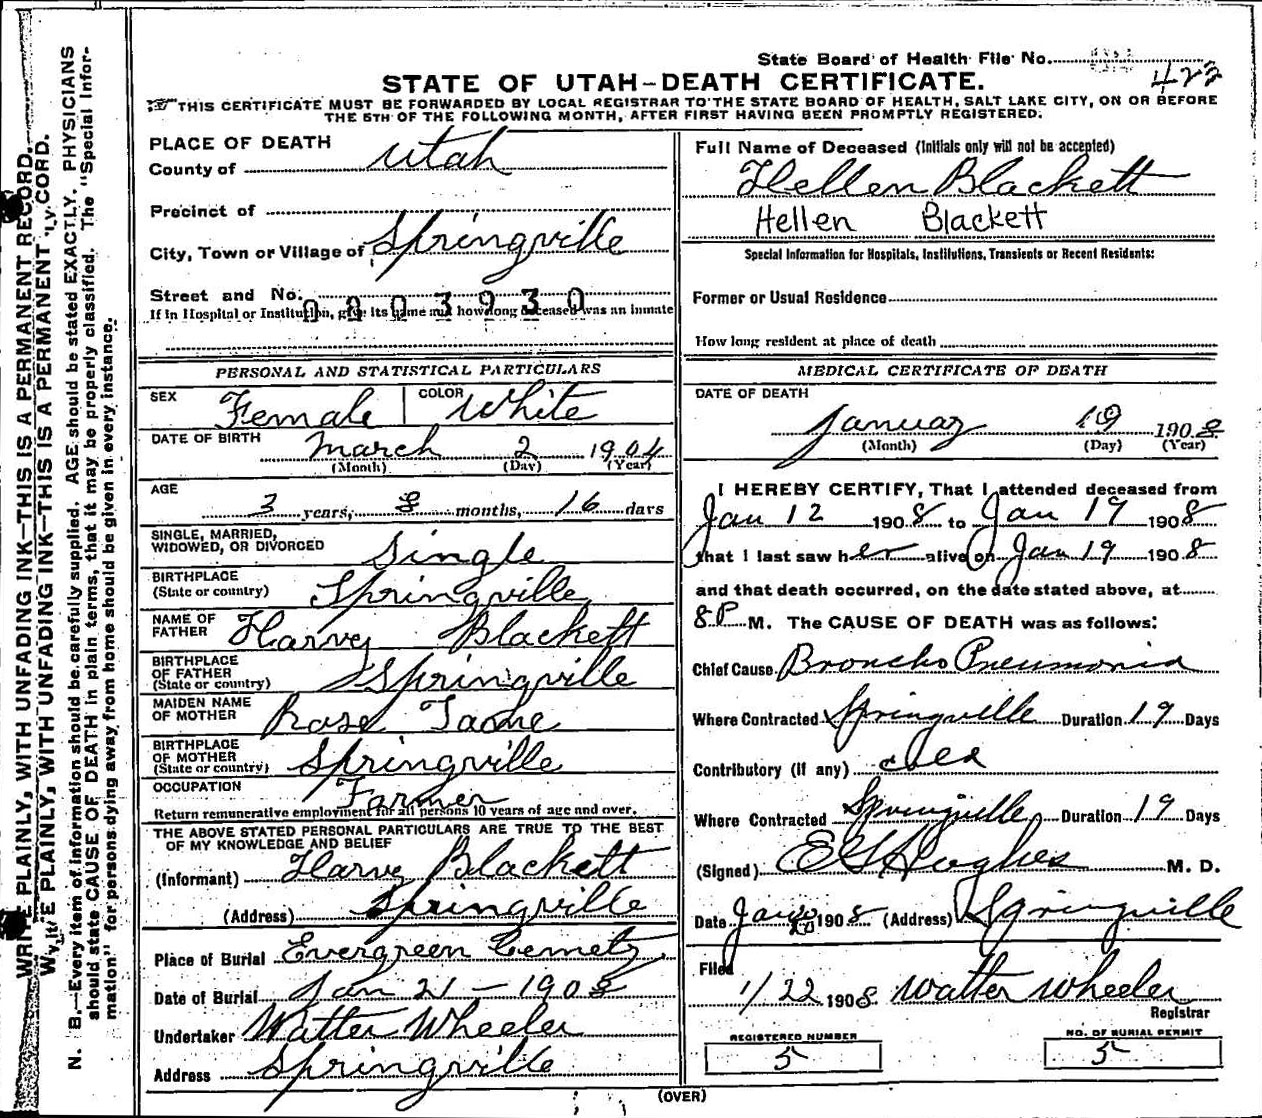 State Board of Health File No.
422
STATE OF UTAH—DEATH CERTIFICATE.
THIS CERTIFICATE MUST BE FORWARDED BY LOCAL REGISTRAR TO THE STATE BOARD OF HEALTH, SALT LAKE CITY, ON OR BEFORE
THE 5TH OF THE FOLLOWING MONTH, AFTER FIRST HAVING BEEN PROMPTLY REGISTERED.
WRITE PLAINLY, WITH UNFADING INK—THIS IS A PERMANENT RECORD.
PLAINLY, WITH UNFADING INK—THIS IS A PERMANENT
N. B.—Every item of information should be carefully supplied. AGE should be stated EXACTLY. PHYSICIANS
should state CAUSE OF DEATH in plain terms, that it may be properly classified. The "Special Infor-
mation" for persons dying away from home should be given in every instance.
PLACE OF DEATH
County of Utah
Precinct of
City, Town or Village of Springville
Street and No.
0803930
If in Hospital or Institution, give its name and how long deceased was an inmate
PERSONAL AND STATISTICAL PARTICULARS
SEX Female COLOR White
DATE OF BIRTH March 2 1904
(Month) (Day) (Year)
AGE
3 years, 8 months, 16 days
SINGLE, MARRIED,
WIDOWED, OR DIVORCED Single
BIRTHPLACE
(State or country) Springville
NAME OF
FATHER Harvey Blackett
BIRTHPLACE
OF FATHER
(State or country) Springville
MAIDEN NAME
OF MOTHER Rose
BIRTHPLACE
OF MOTHER
(State or country) Springville
OCCUPATION
Farmer
Return remunerative employment for all persons 10 years of age and over.
THE ABOVE STATED PERSONAL PARTICULARS ARE TRUE TO THE BEST
OF MY KNOWLEDGE AND BELIEF
(Informant) Harvy Blackett
(Address) Springville
Place of Burial Evergreen Cemety
Date of Burial Jan 21 - 1908
Undertaker Walter Wheeler
Address Springville
Full Name of Deceased (Initials only will not be accepted)
Hellen Blackett
Hellen Blackett
Special Information for Hospitals, Institutions, Transients or Recent Residents:
Former or Usual Residence
How long resident at place of death
MEDICAL CERTIFICATE OF DEATH
DATE OF DEATH
January 19 1908
(Month) (Day) (Year)
I HEREBY CERTIFY, That I attended deceased from
Jan 12 1908 to Jan 19 1908
that I last saw her alive on Jan 19 1908
and that death occurred, on the date stated above, at
8 P M. The CAUSE OF DEATH was as follows:
Chief Cause Broncho Pneumonia
Where Contracted Springville Duration 19 Days
Contributory (if any)
Where Contracted Springville Duration 19 Days
(Signed) E G Hughes M. D.
Date Jan 1908 (Address) Springville
Filed
1/22 1908 Walter Wheeler
Registrar
REGISTERED NUMBER
5
NO. OF BURIAL PERMIT
5
(OVER)